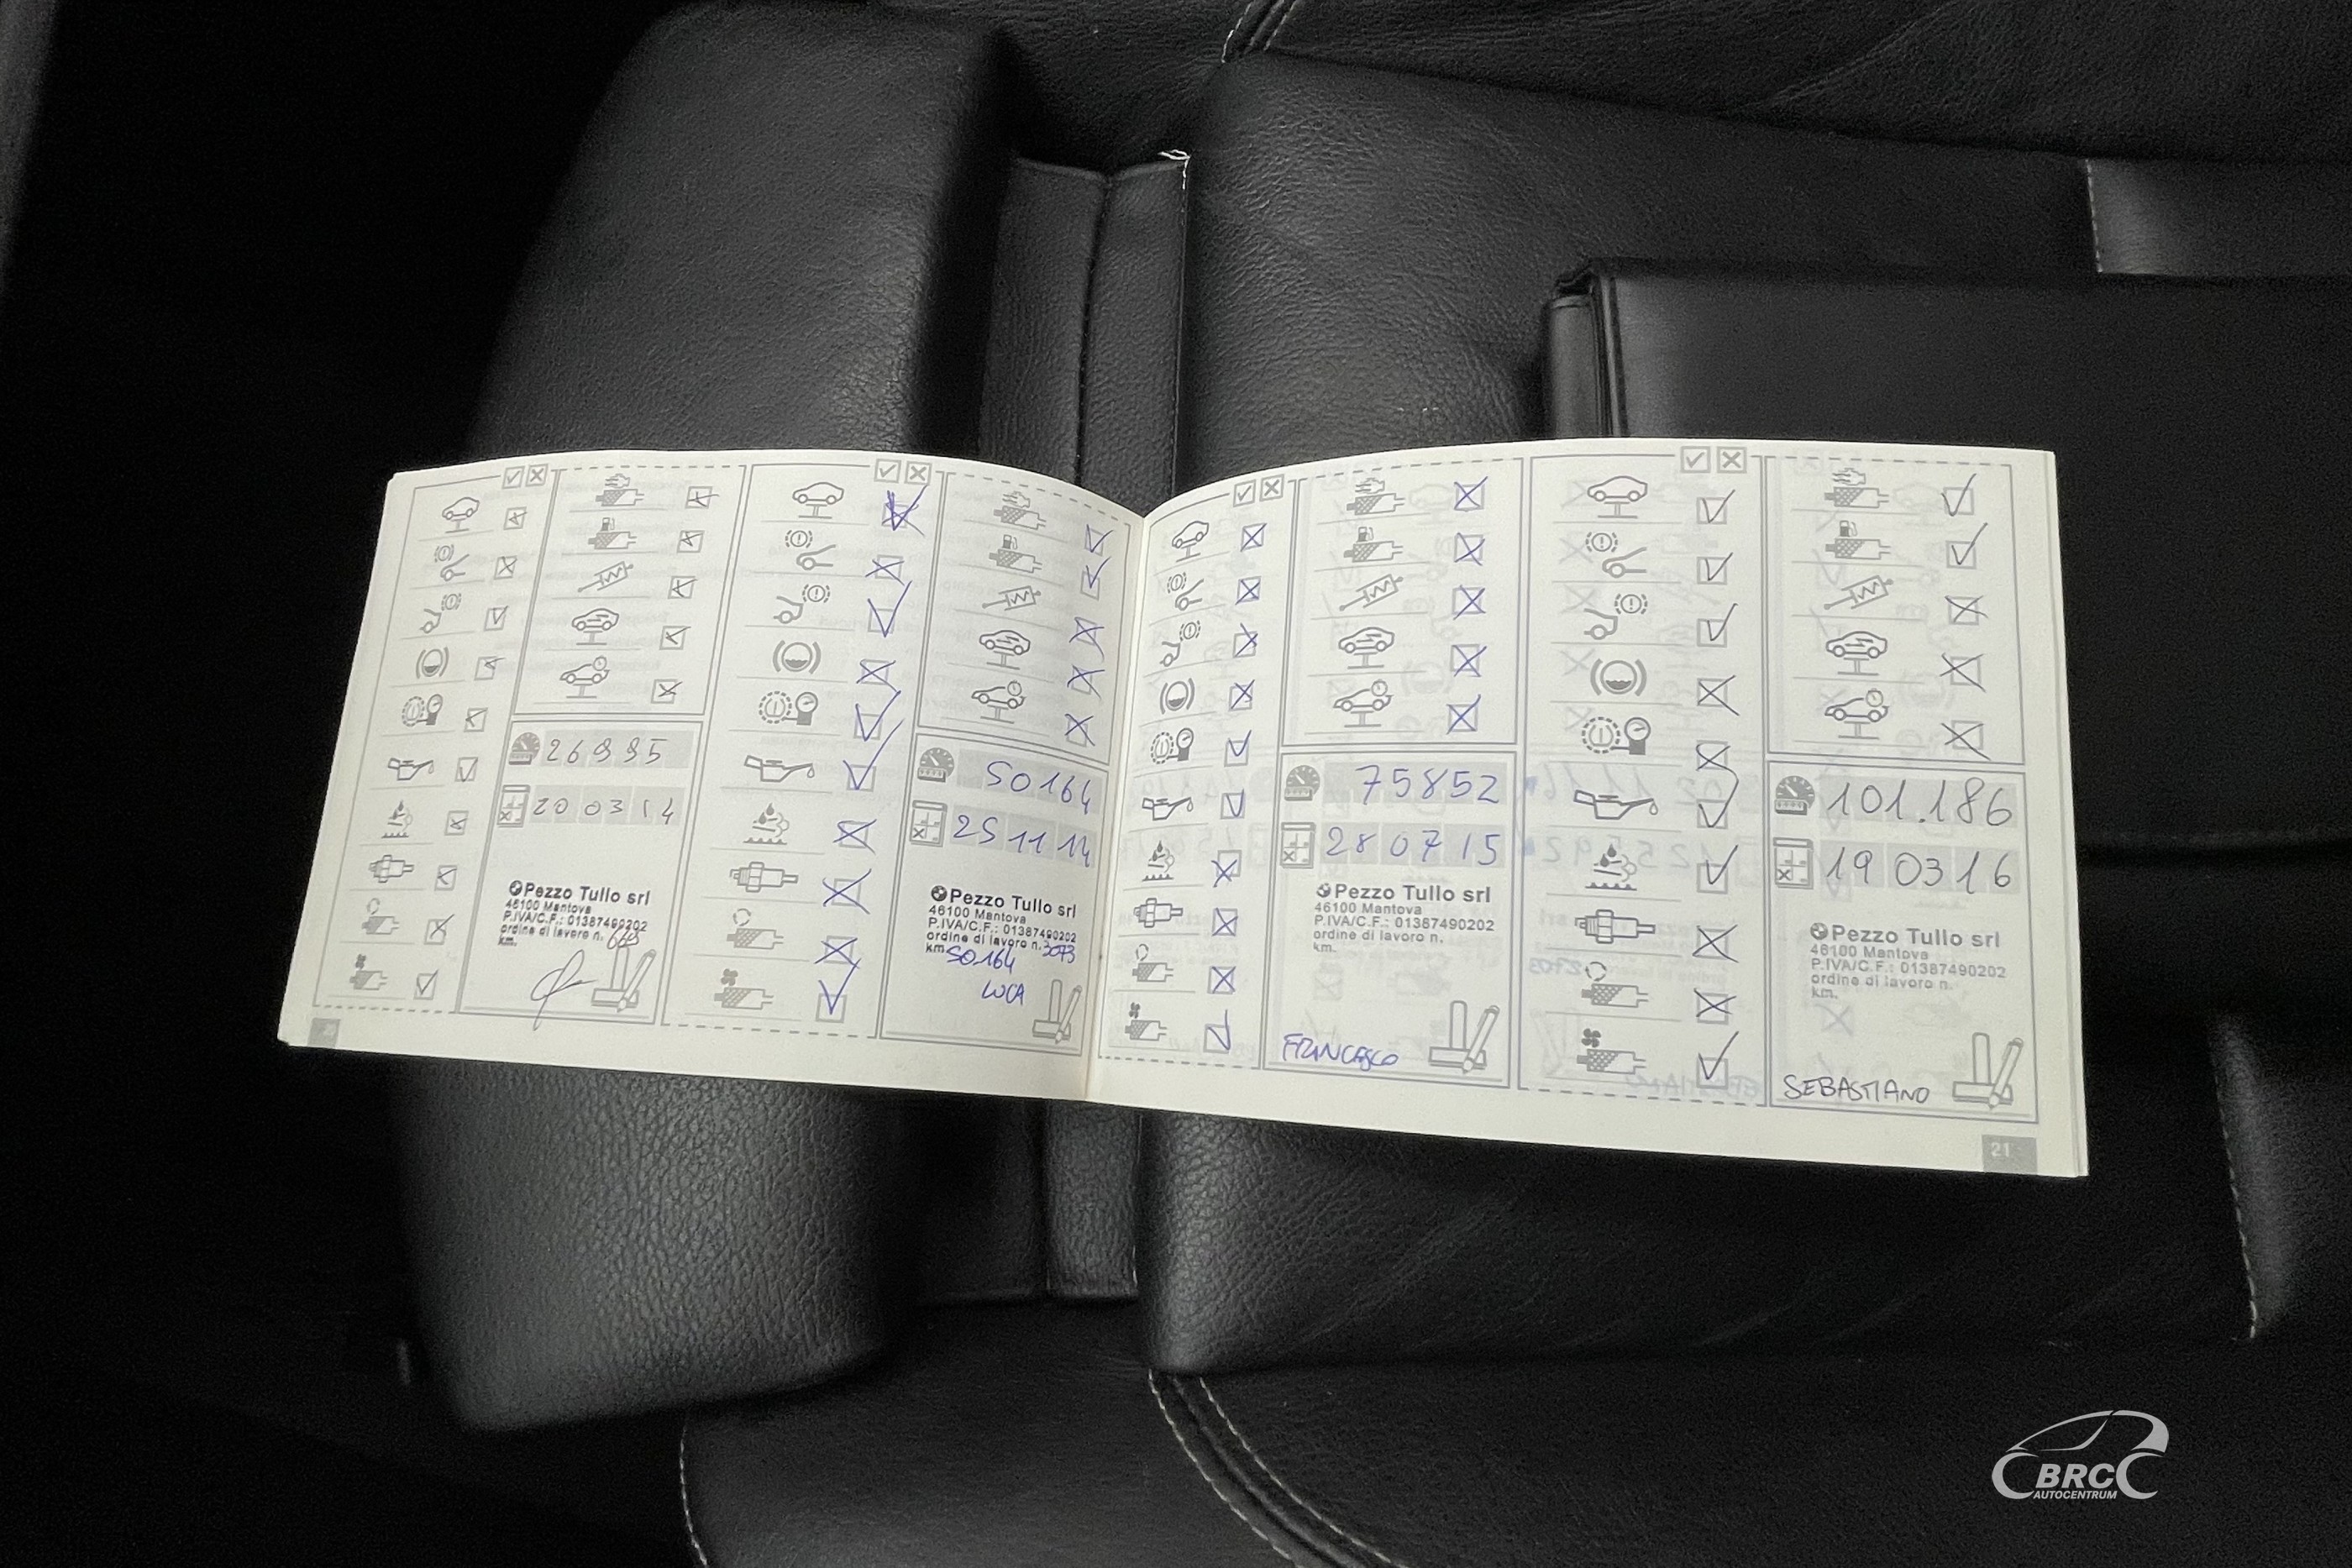 26995
20 03 14
Pezzo Tullo srl
46100 Mantova
P.IVA/C.F.: 01387490202
ordine di lavoro n.
km.
50164
25 11 14
Pezzo Tullo srl
46100 Mantova
P.IVA/C.F.: 01387490202
ordine di lavoro n. 3073
km 50164
LUCA
75852
28 07 15
Pezzo Tullo srl
46100 Mantova
P.IVA/C.F.: 01387490202
ordine di lavoro n.
km.
FRANCESCO
101.186
19 03 16
Pezzo Tullo srl
46100 Mantova
P.IVA/C.F.: 01387490202
ordine di lavoro n.
km.
SEBASTIANO
21
BRC
AUTOCENTRUM